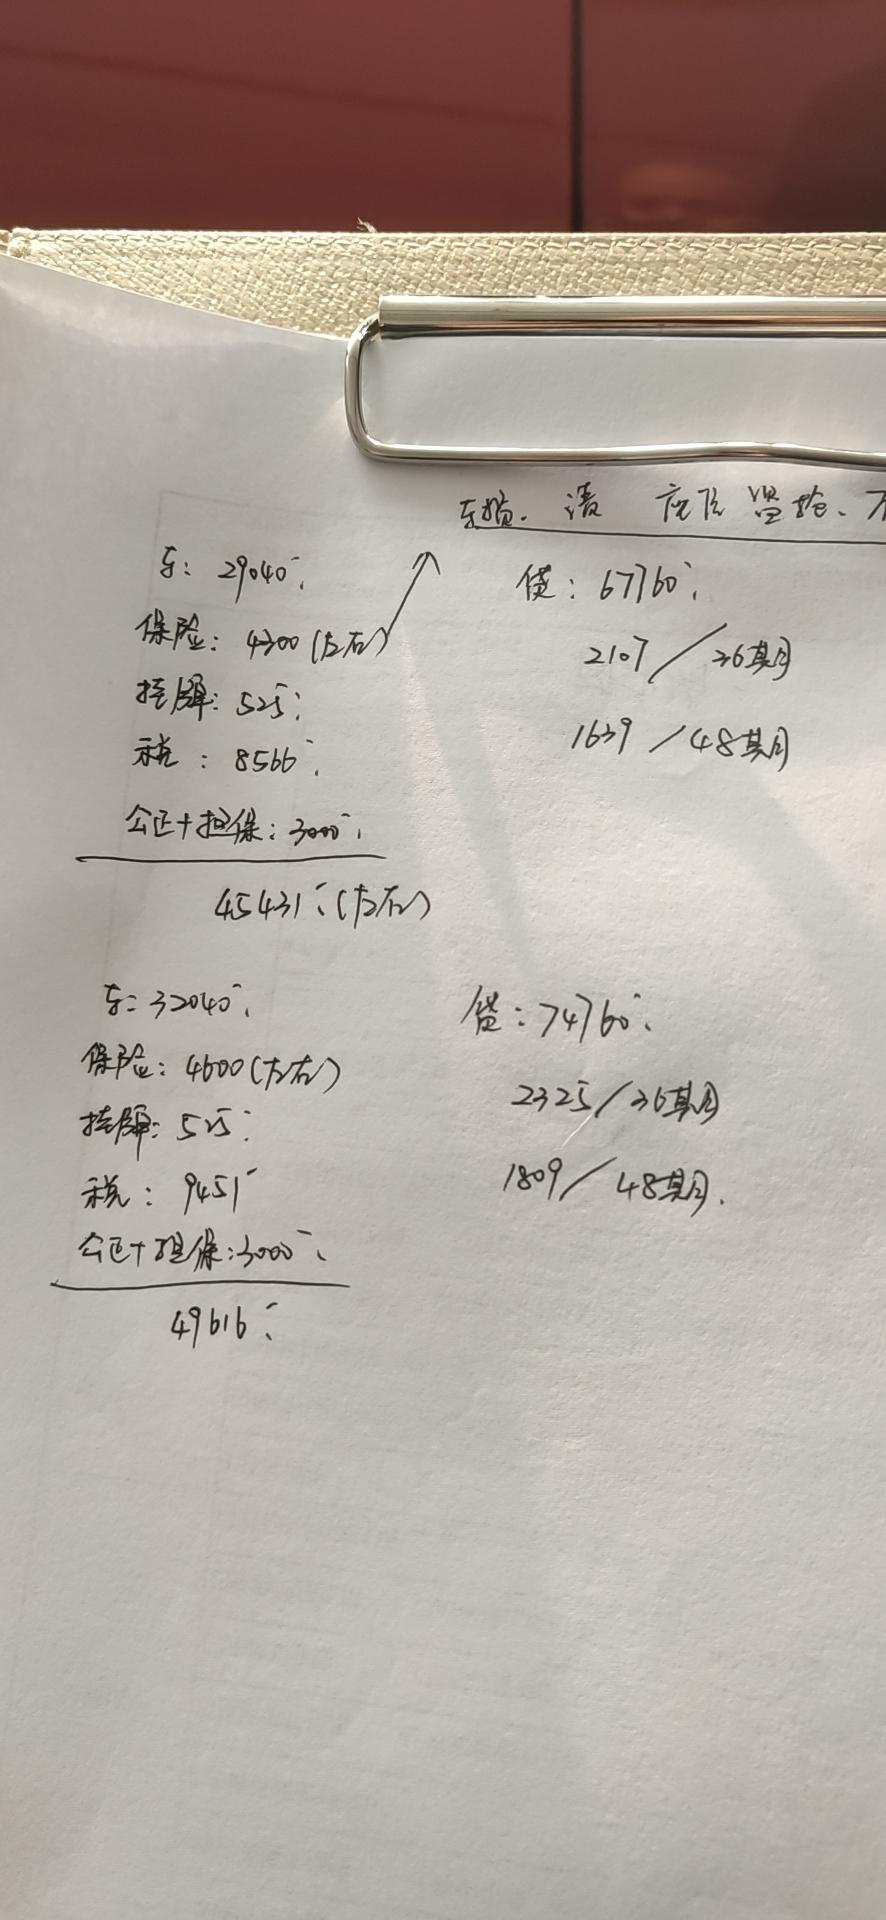 车损. 盗抢.
车: 29040.
保险: 4300 (左右)
挂牌: 525.
税: 8566.
公正+担保: 3000.
45431 (左右)
贷: 67760.
2107/36期月
1639/48期月
车: 32040.
保险: 4600 (左右)
挂牌: 525
税: 9451
公正+担保: 3000.
49616.
贷: 74760.
2325/36期月
1809/48期月.